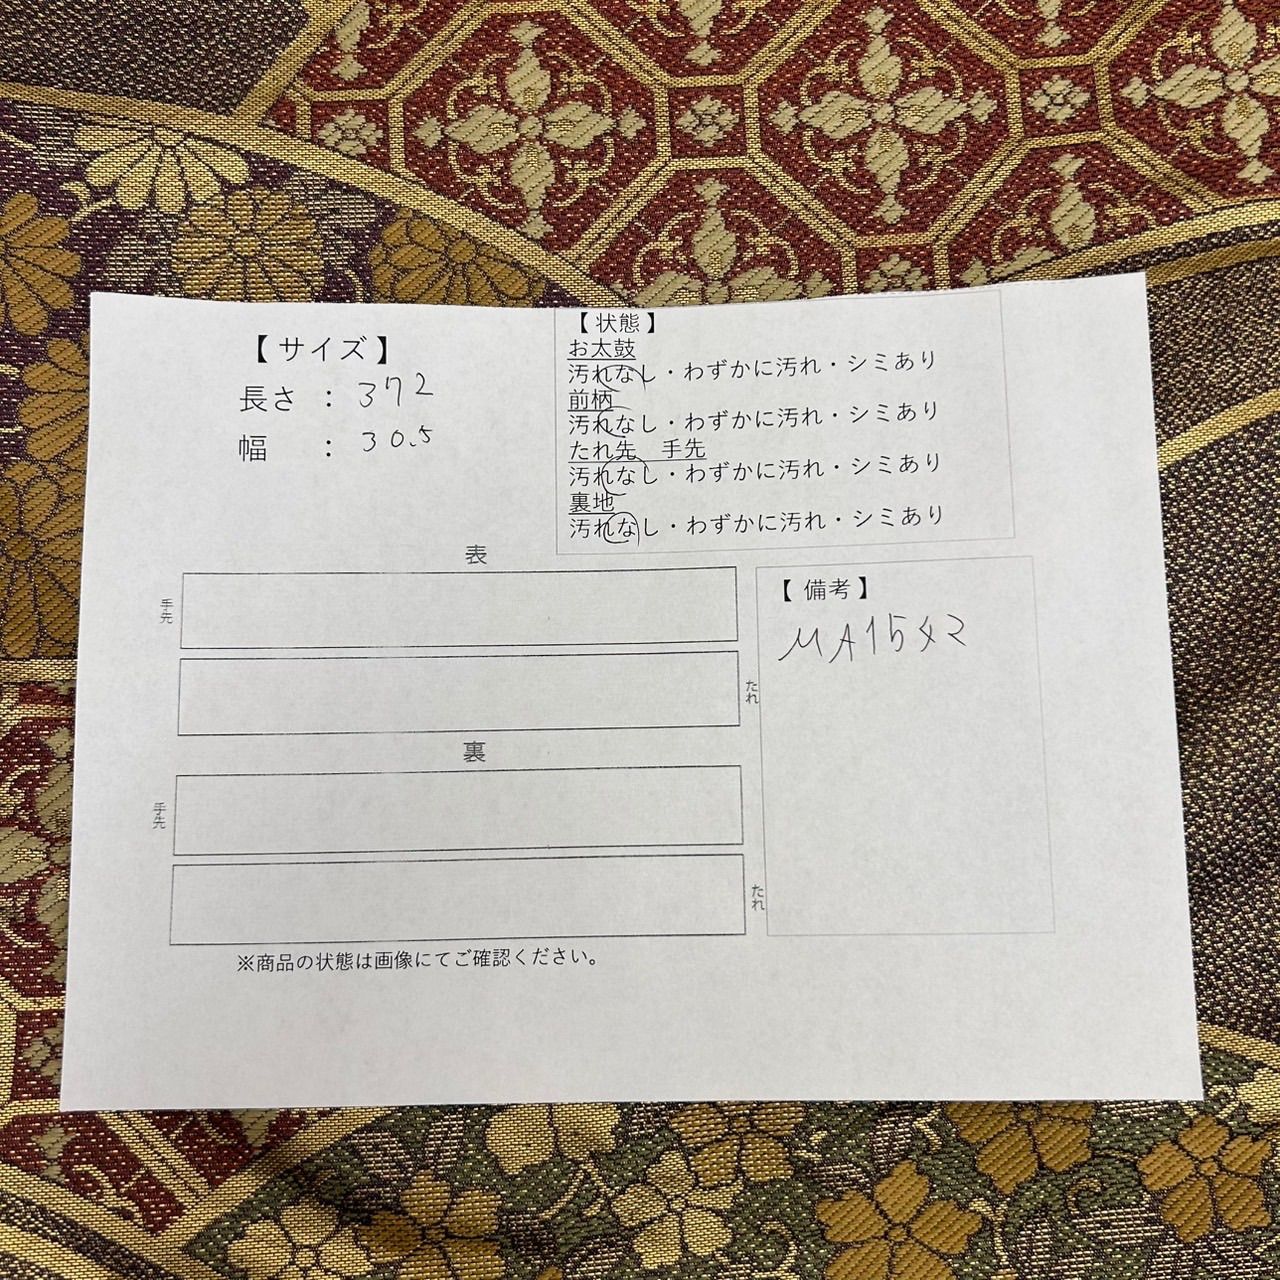 【 サイズ 】
長さ ： 372
幅 ： 30.5
【 状態 】
お太鼓
汚れなし・わずかに汚れ・シミあり
前柄
汚れなし・わずかに汚れ・シミあり
たれ先　手先
汚れなし・わずかに汚れ・シミあり
裏地
汚れなし・わずかに汚れ・シミあり
表
手先
たれ
裏
手先
たれ
【 備考 】
MA1542
※商品の状態は画像にてご確認ください。